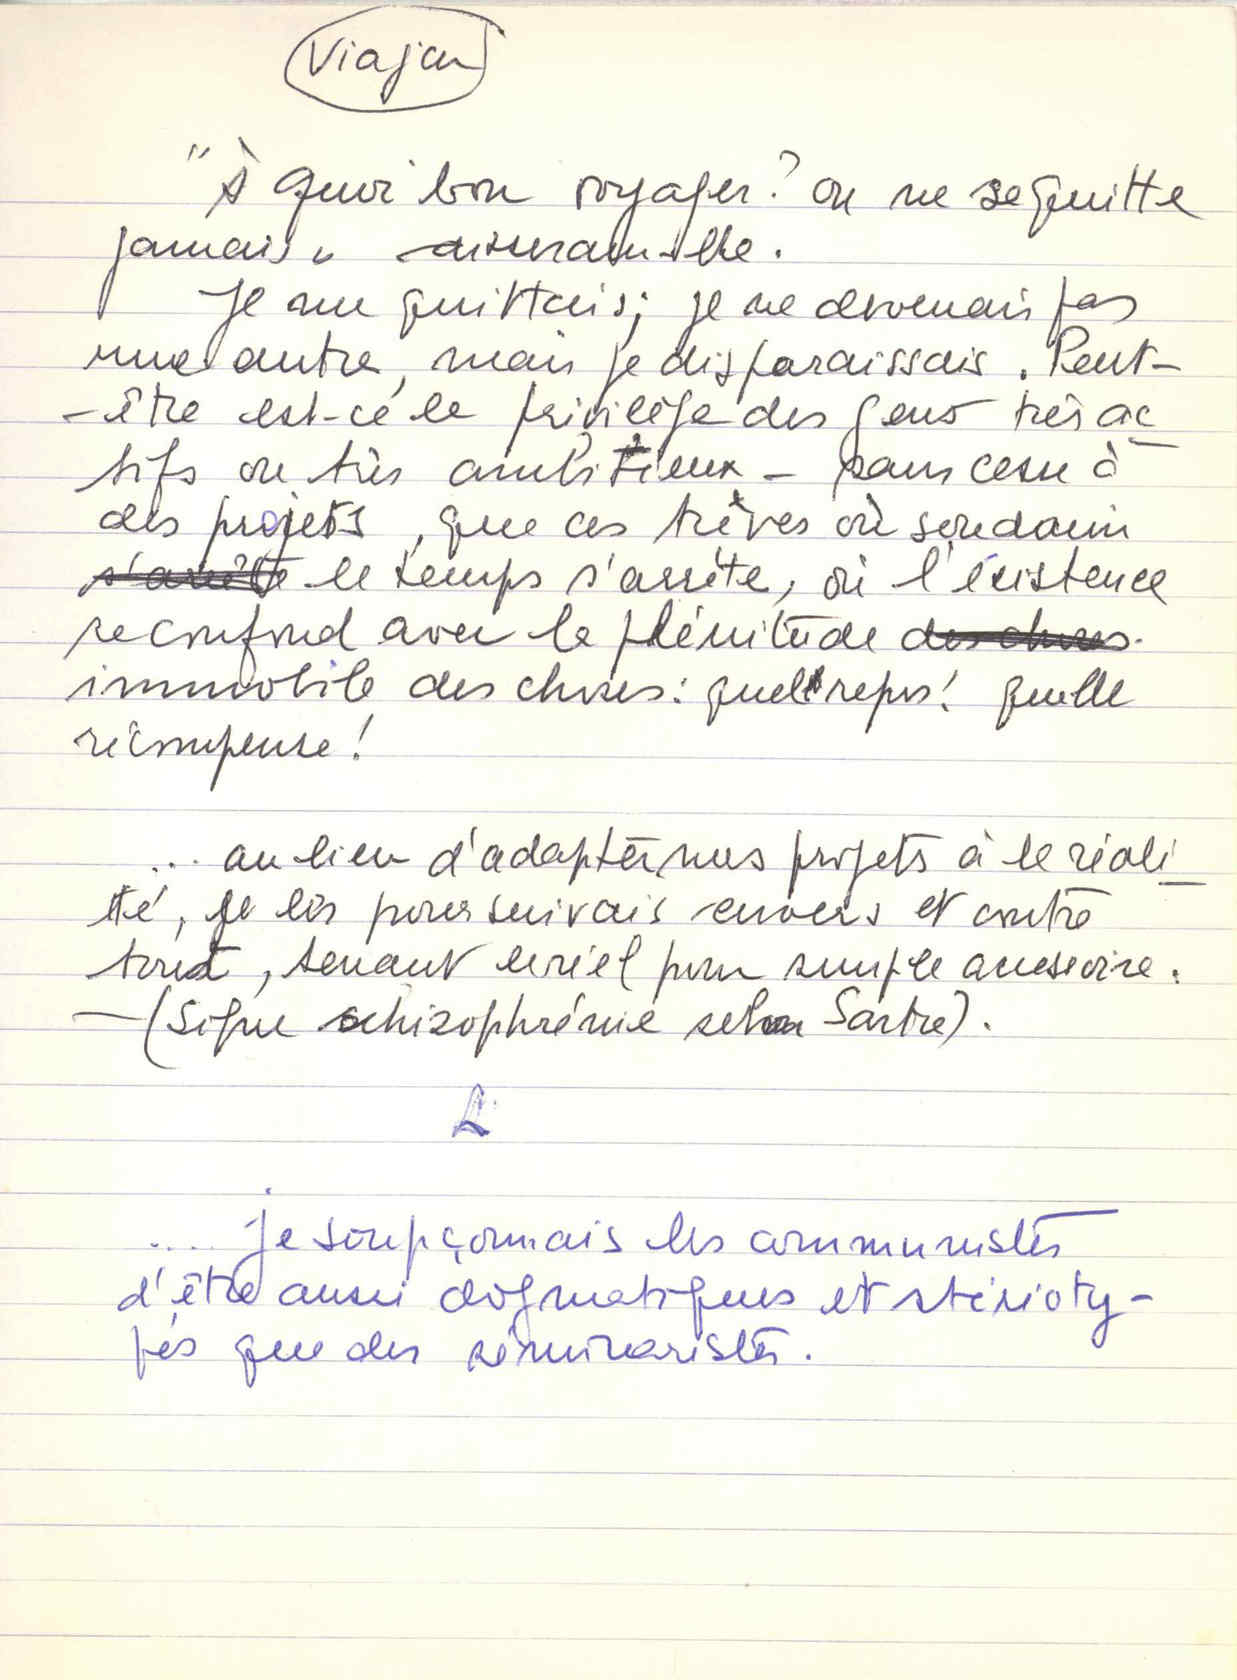 Viajar
"À quoi bon voyager? on ne se quitte
jamais" 
Je me quittais; je ne devenais pas
une autre, mais je disparaissais. Peut-
-être est-ce le privilège des gens très ac
tifs ou très ambitieux - sans cesse à
des projets, que ces trêves où soudain
s'arrête le temps s'arrête, où l'existence
se confond avec la plénitude des choses
immobile des choses: quel repos! quelle
récompense!
... au lieu d'adapter mes projets à la réali
té, je les poursuivais envers et contre
tout, tenant le réel pour simple accessoire.
- (Signe schizophrénie selon Sartre).
.... je soupçonnais les communistes
d'être aussi dogmatiques et stérioty-
pés que des séminaristes.